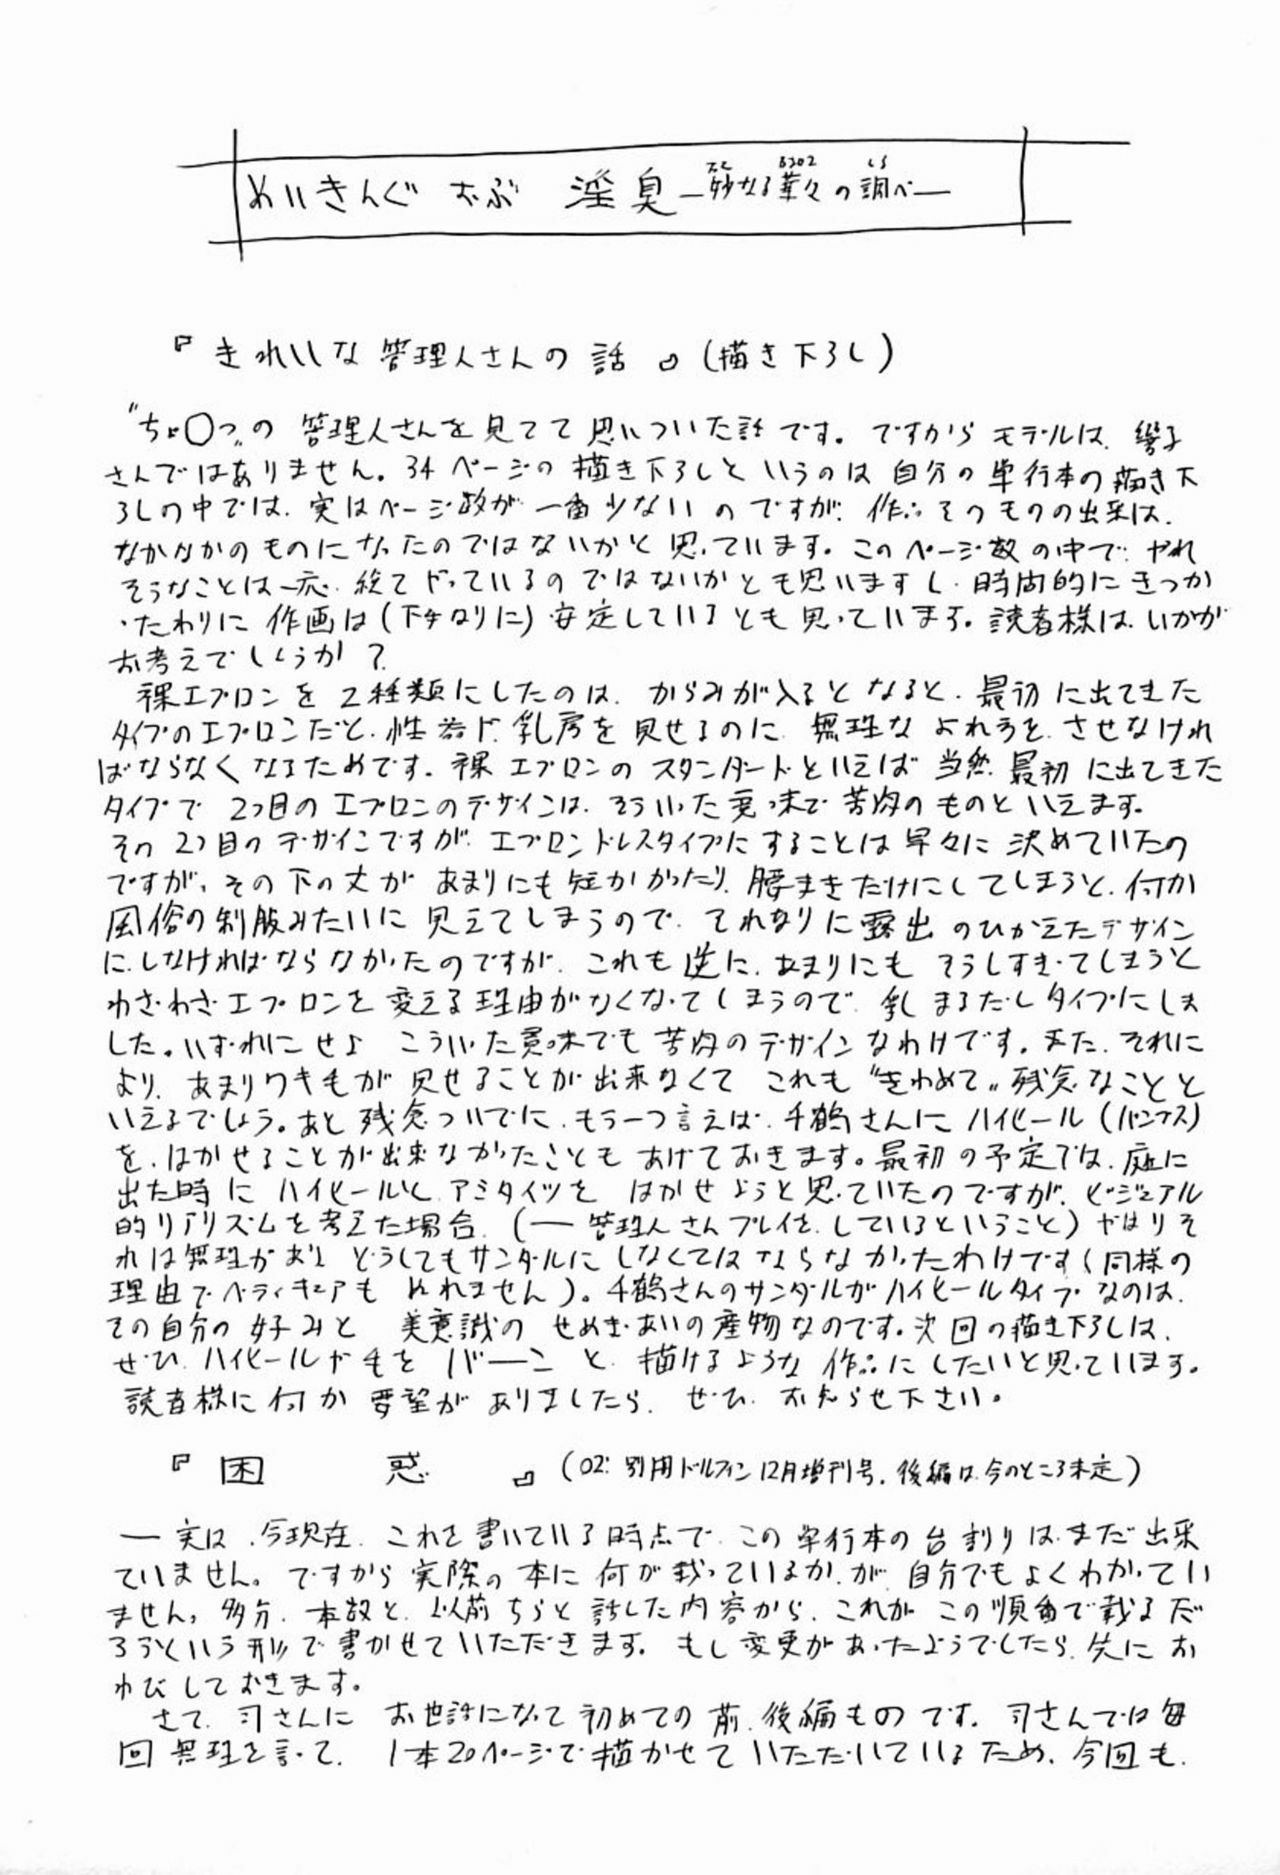 めいきんぐ おぶ 淫臭 ―妙なる華々の調べ―
『きれいな管理人さんの話』(描き下ろし)
"ちょ○っ"の 管理人さんを見てて思いついた話です。ですからモデルは、響子
さんではありません。34ページの描き下ろしというのは自分の単行本の描き下
ろしの中では、実はページ数が一番少ないのですが、作品そのものの出来は、
なかなかのものになったのではないかと思っています。このページ数の中で、やれ
そうなことは一応、総てやっているのではないかとも思いますし、時間的にきつか
ったわりに作画は(下手なりに)安定しているとも思っています。読者様は、いかが
お考えでしょうか?
裸エプロンを2種類にしたのは、からみが入るとなると、最初に出てきた
タイプのエプロンだと、性器や、乳房を見せるのに、無理なよれ方を、させなけれ
ばならなくなるためです。裸エプロンのスタンダードといえば当然、最初に出てきた
タイプで2つ目のエプロンのデザインは、そういった意味で苦肉のものといえます。
その2つ目のデザインですが、エプロンドレスタイプにすることは早々に決めていたの
ですが、その下の丈があまりにも短かかったり、腰まきだけにしてしまうと、何か
風俗の制服みたいに見えてしまうので、それなりに露出のひかえたデザイン
に、しなければならなかったのですが、これも逆に、あまりにもそうしすぎてしまうと
わざわざエプロンを変える理由がなくなってしまうので、乳まるだしタイプにしま
した。いずれにせよ こういった意味でも苦肉のデザインなわけです。また、それに
より、あまりワキ毛が見せることが出来なくて これも"きわめて"残念なことと
いえるでしょう。あと残念ついでに、もう一つ言えば、千鶴さんにハイヒール(パンプス)
を、はかせることが出来なかったこともあげておきます。最初の予定では、庭に
出た時にハイヒールと、アミタイツをはかせようと思っていたのですが、ビジュアル
的リアリズムを考えた場合、(―管理人さんプレイを、しているということ)やはりそ
れは無理があり どうしてもサンダルにしなくてはならなかったわけです(同様の
理由でペディキュアもぬれません)。千鶴さんのサンダルがハイヒールタイプなのは、
その自分の好みと 美意識の せめぎあいの産物なのです。次回の描き下ろしは、
ぜひ、ハイヒールや毛を バーンと、描けるような作品にしたいと思っています。
読者様に何か要望がありましたら、ぜひ、お知らせ下さい。
『困 惑』(02' 別冊ドルフィン12月増刊号、後編は、今のところ未定)
―実は、今現在、これを書いている時点で、この単行本の台割りは、まだ出来
ていません。ですから実際の本に何が載っているか、が、自分でもよくわかってい
ません。多分、本数と、以前ちらと話した内容から、これがこの順番で載るだ
ろうという形で書かせていただきます。もし変更があったようでしたら、先にお
わびしておきます。
さて、司さんにお世話になって初めての前、後編ものです。司さんでは毎
回無理を言って、1本20ページで描かせていただいているため、今回も、